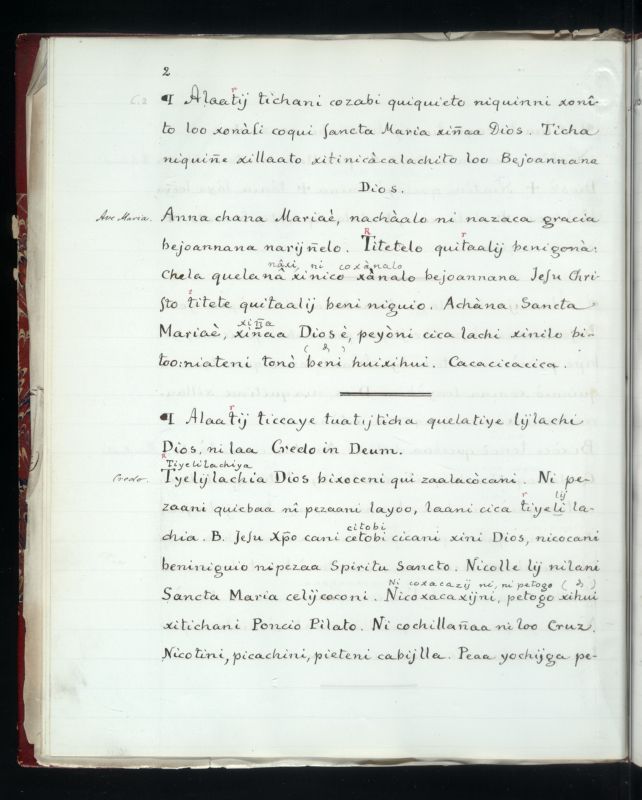 2
C.2
¶ Alaatij tichani cozabi quiquieto niquinni xonî-
to loo xonàsi coqui Sancta Maria xiñaa Dios. Ticha
niquiñe xillaato xitinicàcalachito loo Bejoannana
Dios.
Ave Maria.
Anna chana Mariaè, nachàalo ni nazaca gracia
R r
bejoannana narijñelo. Titetelo quitaalij benigonà:
nâxi, ni coxànalo
chela quelanà xinico xànalo bejoannana Jesu Chri-
sto titete quitaalij beni niguio. Achàna Sancta
xiña
Mariaè, xiñaa Dios è, peyòni cica lachi xinilo bi-
too:niateni tonò beni huixihui. Cacacicacica.
¶ Alaatij ticcaye tuatijticha quelatiye lijlachi
Dios, ni laa Credo in Deum.
R
Tiyelilachiya
Credo.
Tyelij lachia Dios bixoceni qui zaalacòcani. Ni pe-
r lij
zaani quiebaa nî pezaani layoo, laani cica tiyeli la-
citobi
chia. B. Jesu Xpõ cani cetobi cicani xini Dios, nicocani
beniniguio nipezaa Spiritu Sancto. Nicolle lij nilani
Ni coxacazij ni, ni petogo
Sancta Maria celijcoconi. Nicoxacaxijni, petogo xihui
xitichani Poncio Pilato. Ni cochillañaa ni loo Cruz.
Nicotini, picachini, pieteni cabijlla. Peaa yochijga pe-